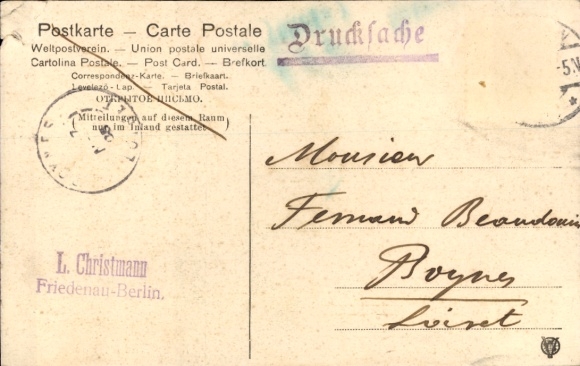 Postkarte — Carte Postale
Weltpostverein. — Union postale universelle
Cartolina Postale. — Post Card. — Brefkort
Correspondenz-Karte. — Briefkaart.
Levelező-Lap. — Tarjeta Postal.
ОТКРЫТОЕ ПИСЬМО.
Mitteilungen auf diesem Raum
nur im Inland gestattet
Drucksache
5.V
BOYNES
L. Christmann
Friedenau-Berlin.
Monsieur
Fernand Beaudouin
Boynes
Loiret